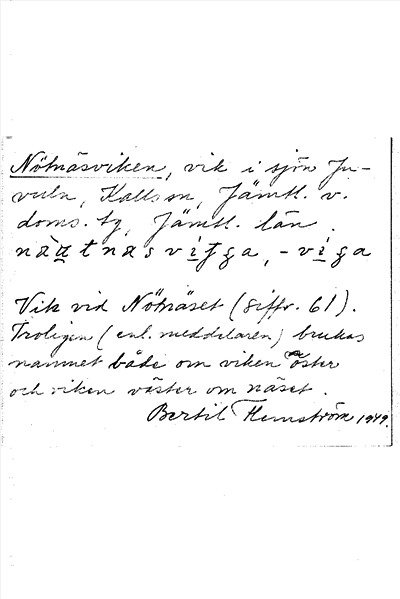 Nötnäsviken, vik i sjön Ju-
vuln, Kalls sn, Jämtl. v.
doms. tg, Jämtl. län.
Vik vid Nötnäset (siffr. 61).
Troligen (enl. meddelaren) brukas
namnet både om viken öster
och viken väster om näset.
Bertil Flemström 1949.